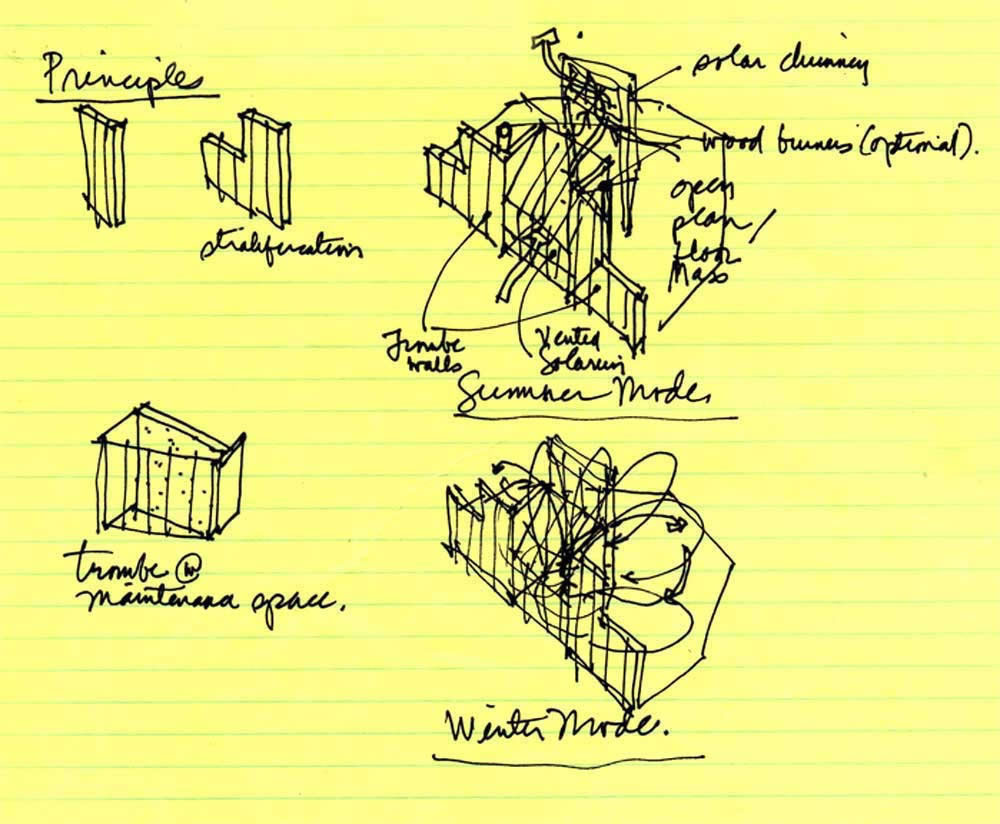 Principles
solar chimney
wood burners (optional).
open
plan/
floor
Mass
stratification
Trombe
walls
Vented
Solarium
Summer Mode.
trombe @
maintenance space.
Winter Mode.